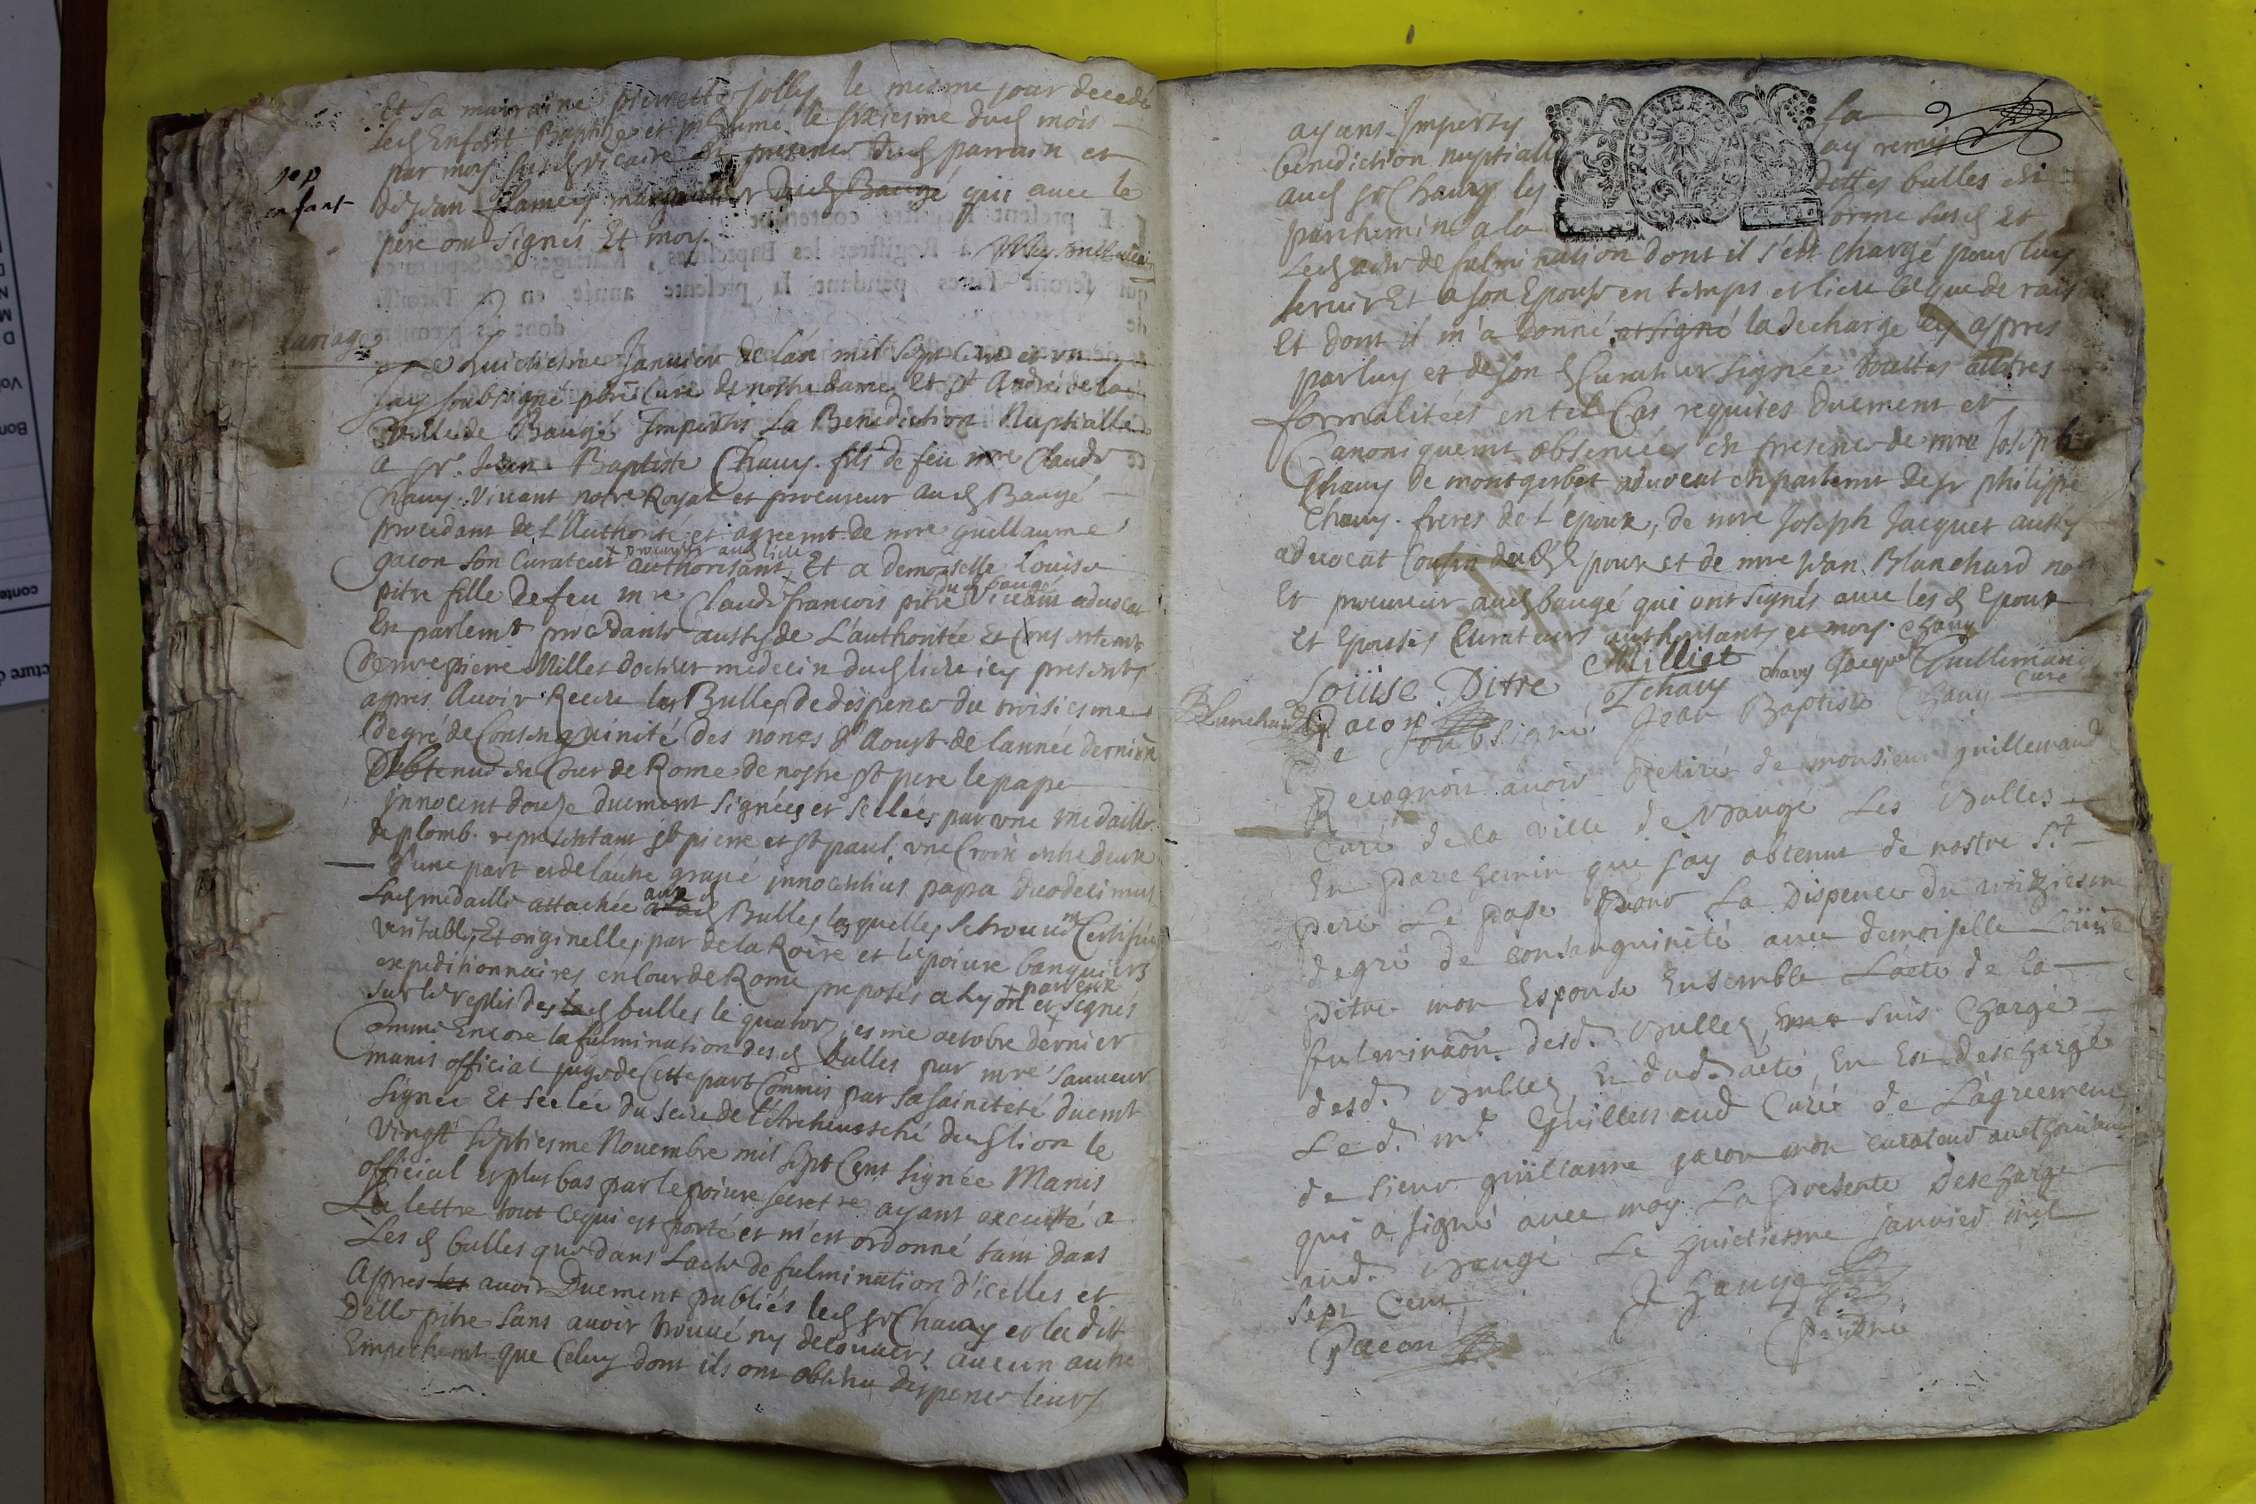 Et sa marraine pierrette jolly le mesme jour decedé
led Enfant Baptizé et inhumé le sixiesme dud mois
par moy susd vicaire en presence dud parrain et
de jean flamery marguillier dud Baugé qui avec le
pere ont signés Et moy.
sep
enfant
mariage
Le huictiesme Januier de lan mil sept cent et un
jay soubsigné pbre Curé de nostre dame Et St André de la
Ville de Baugé Impertis La Benediction Nuptialle
a Sr. Jean Baptiste Chauy fils de feu mre Claude
Chauy vivant notre Royal et procureur aud Baugé
procedant de L'Authorité et agreemt de mre guillaume
gacon son Curateur authorisant, procureur aud lieu Et a demoiselle Louise
pitre fille de feu mre Claude francois pitre dud baugé Vivant advocat
En parlemt procedante aussy de L'authoritée Et Consentemt
de mre pierre Millet docteur medecin dud lieu icy present
apres Auoir Receu les Bulles de dispence du troisiesme
degré de Consenguinité des nones d'Aoust de lannée derniere
Obtenue en Cour de Rome de nostre St pere le pape
jnnocent douze duement signées et sellées par une medaille
de plomb representant St pierre et St paul, une Croix entre deux
d'une part et de lautre gravé jnnocentius papa duodecimus
Lad medaille attachée aux d Bulles lesquelles se trouuent Certifiées
veritables Et originelles par de la Roire et lepoiure banquiers
expeditionnaires en Cour de Rome preposés a Lyon et signés par eux
sur le replis desd bulles le quatorziesme octobre dernier
Comme Encore la fulmination des d bulles par mre sauueur
manis official juge de Cette part Commis par sa sainteté duemt
signée Et seelée du sceau de l'Archeuesché dud lion le
vingt septiesme Nouembre mil sept Cent signée Manis
official et plus bas par lepoiure secretre ayant executé a
La lettre tout ce qui est porté et m'est ordonné tant dans
Les d bulles que dans Lacte de fulmination d'icelles et
Apres les auoir Duement publiés led Sr Chauy et laditte
Delle pitre sans auoir trouué ny decouuert aucun autre
Empechemt que Celuy dont ils ont obtenu dispence leurs
ayans Imperty la
benediction nuptialle ay remis
aud Sr Chauy les dittes bulles en
parchemin a la forme susd Et
Led acte de fulmination dont il s'est chargé pour luy
seruir Et a son Epouse en temps et lieu Ce que de raison
Et dont il m'a donné et signé la decharge Cy apres
par luy et de son d Curateur signée touttes autres
formalitées en tel Cas requises duement et
Canoniquemt obseruées en presence de mre Joseph
Chauy de montgerbet aduocat en parlemt de Sr philippe
Chauy freres de l'epoux, de mre Joseph Jacquet aussy
aduocat Cousin dud Epoux et de mre Jean Blanchard notre
Et procureur aud baugé qui ont signés auec les d Epoux
et Epouse, Curateurs authorisants et moy. Chauy
Loüise Pitre Milliet Chauy chauy Jacquet Guillemaud Curé
Blanchard
Gacon
Je soubsigné Jean Baptiste Chauy
Recognoit auoir Retiré de monsieur guillemaud
Curé de la ville de Baugé Les Bulles
En Parchemin que jay obtenu de nostre St
Pere Le Pape Pour La Dispence du troiziesme
degré de Consanguinité auec demoiselle Loüise
Pitre mon Espouse Ensemble L'acte de la
fulminaõn desd. Bulles, me suis Chargé
desd. Bulles Et dud. acte, En Est deschargé
Le d. mr Guillemaud Curé de L'agreement
de sieur guillaume gacon mon curateur authorisant
qui a signé auec moy La Presente descharge
aud. Baugé Le huictiesme januier mil
sept Cent
Chauy
Gacon